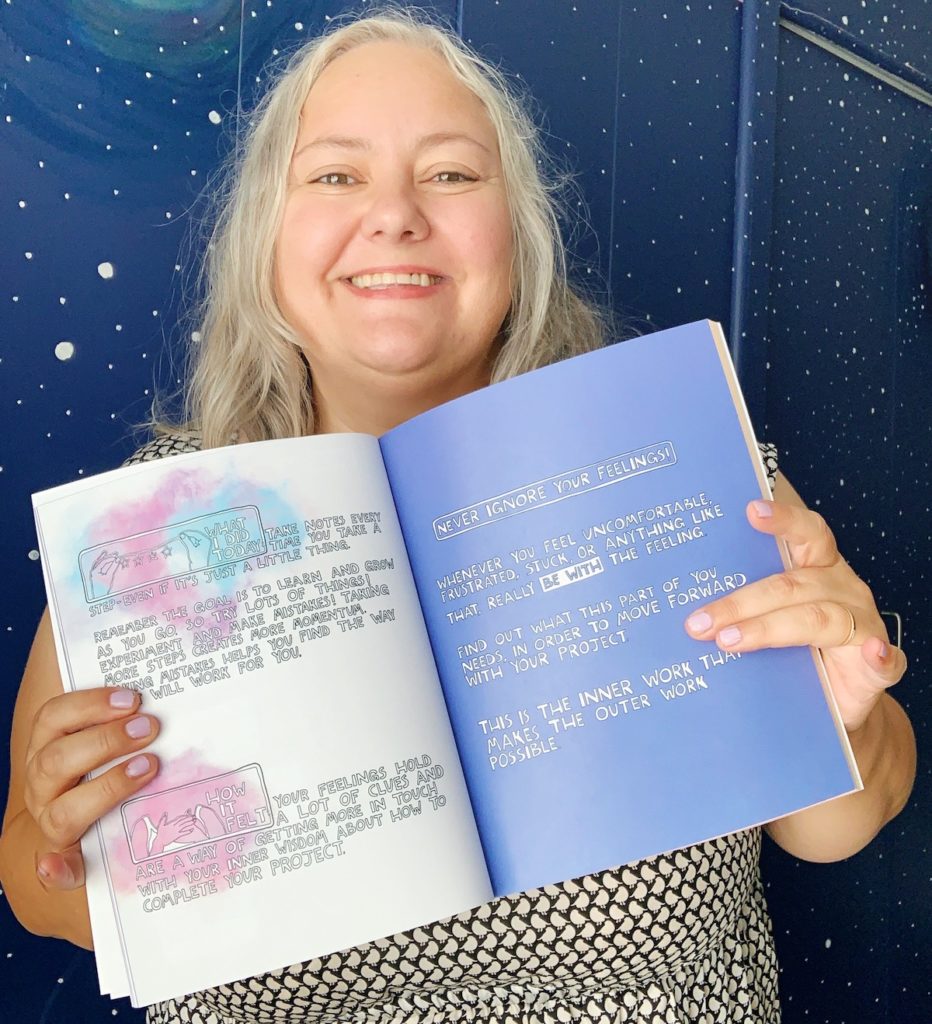 WHAT
I DID
TODAY TAKE NOTES EVERY
TIME YOU TAKE A
STEP-EVEN IF IT'S JUST A LITTLE THING.
REMEMBER THE GOAL IS TO LEARN AND GROW
AS YOU GO. SO TRY LOTS OF THINGS!
EXPERIMENT AND MAKE MISTAKES! TAKING
MORE STEPS CREATES MORE MOMENTUM.
MISTAKES HELPS YOU FIND THE WAY
WILL WORK FOR YOU.
HOW
IT
FELT YOUR FEELINGS HOLD
A LOT OF CLUES AND
ARE A WAY OF GETTING MORE IN TOUCH
WITH YOUR INNER WISDOM ABOUT HOW TO
COMPLETE YOUR PROJECT.
NEVER IGNORE YOUR FEELINGS!
WHENEVER YOU FEEL UNCOMFORTABLE,
FRUSTRATED, STUCK, OR ANYTHING LIKE
THAT, REALLY BE WITH THE FEELING.
FIND OUT WHAT THIS PART OF YOU
NEEDS, IN ORDER TO MOVE FORWARD
WITH YOUR PROJECT.
THIS IS THE INNER WORK THAT
MAKES THE OUTER WORK
POSSIBLE.